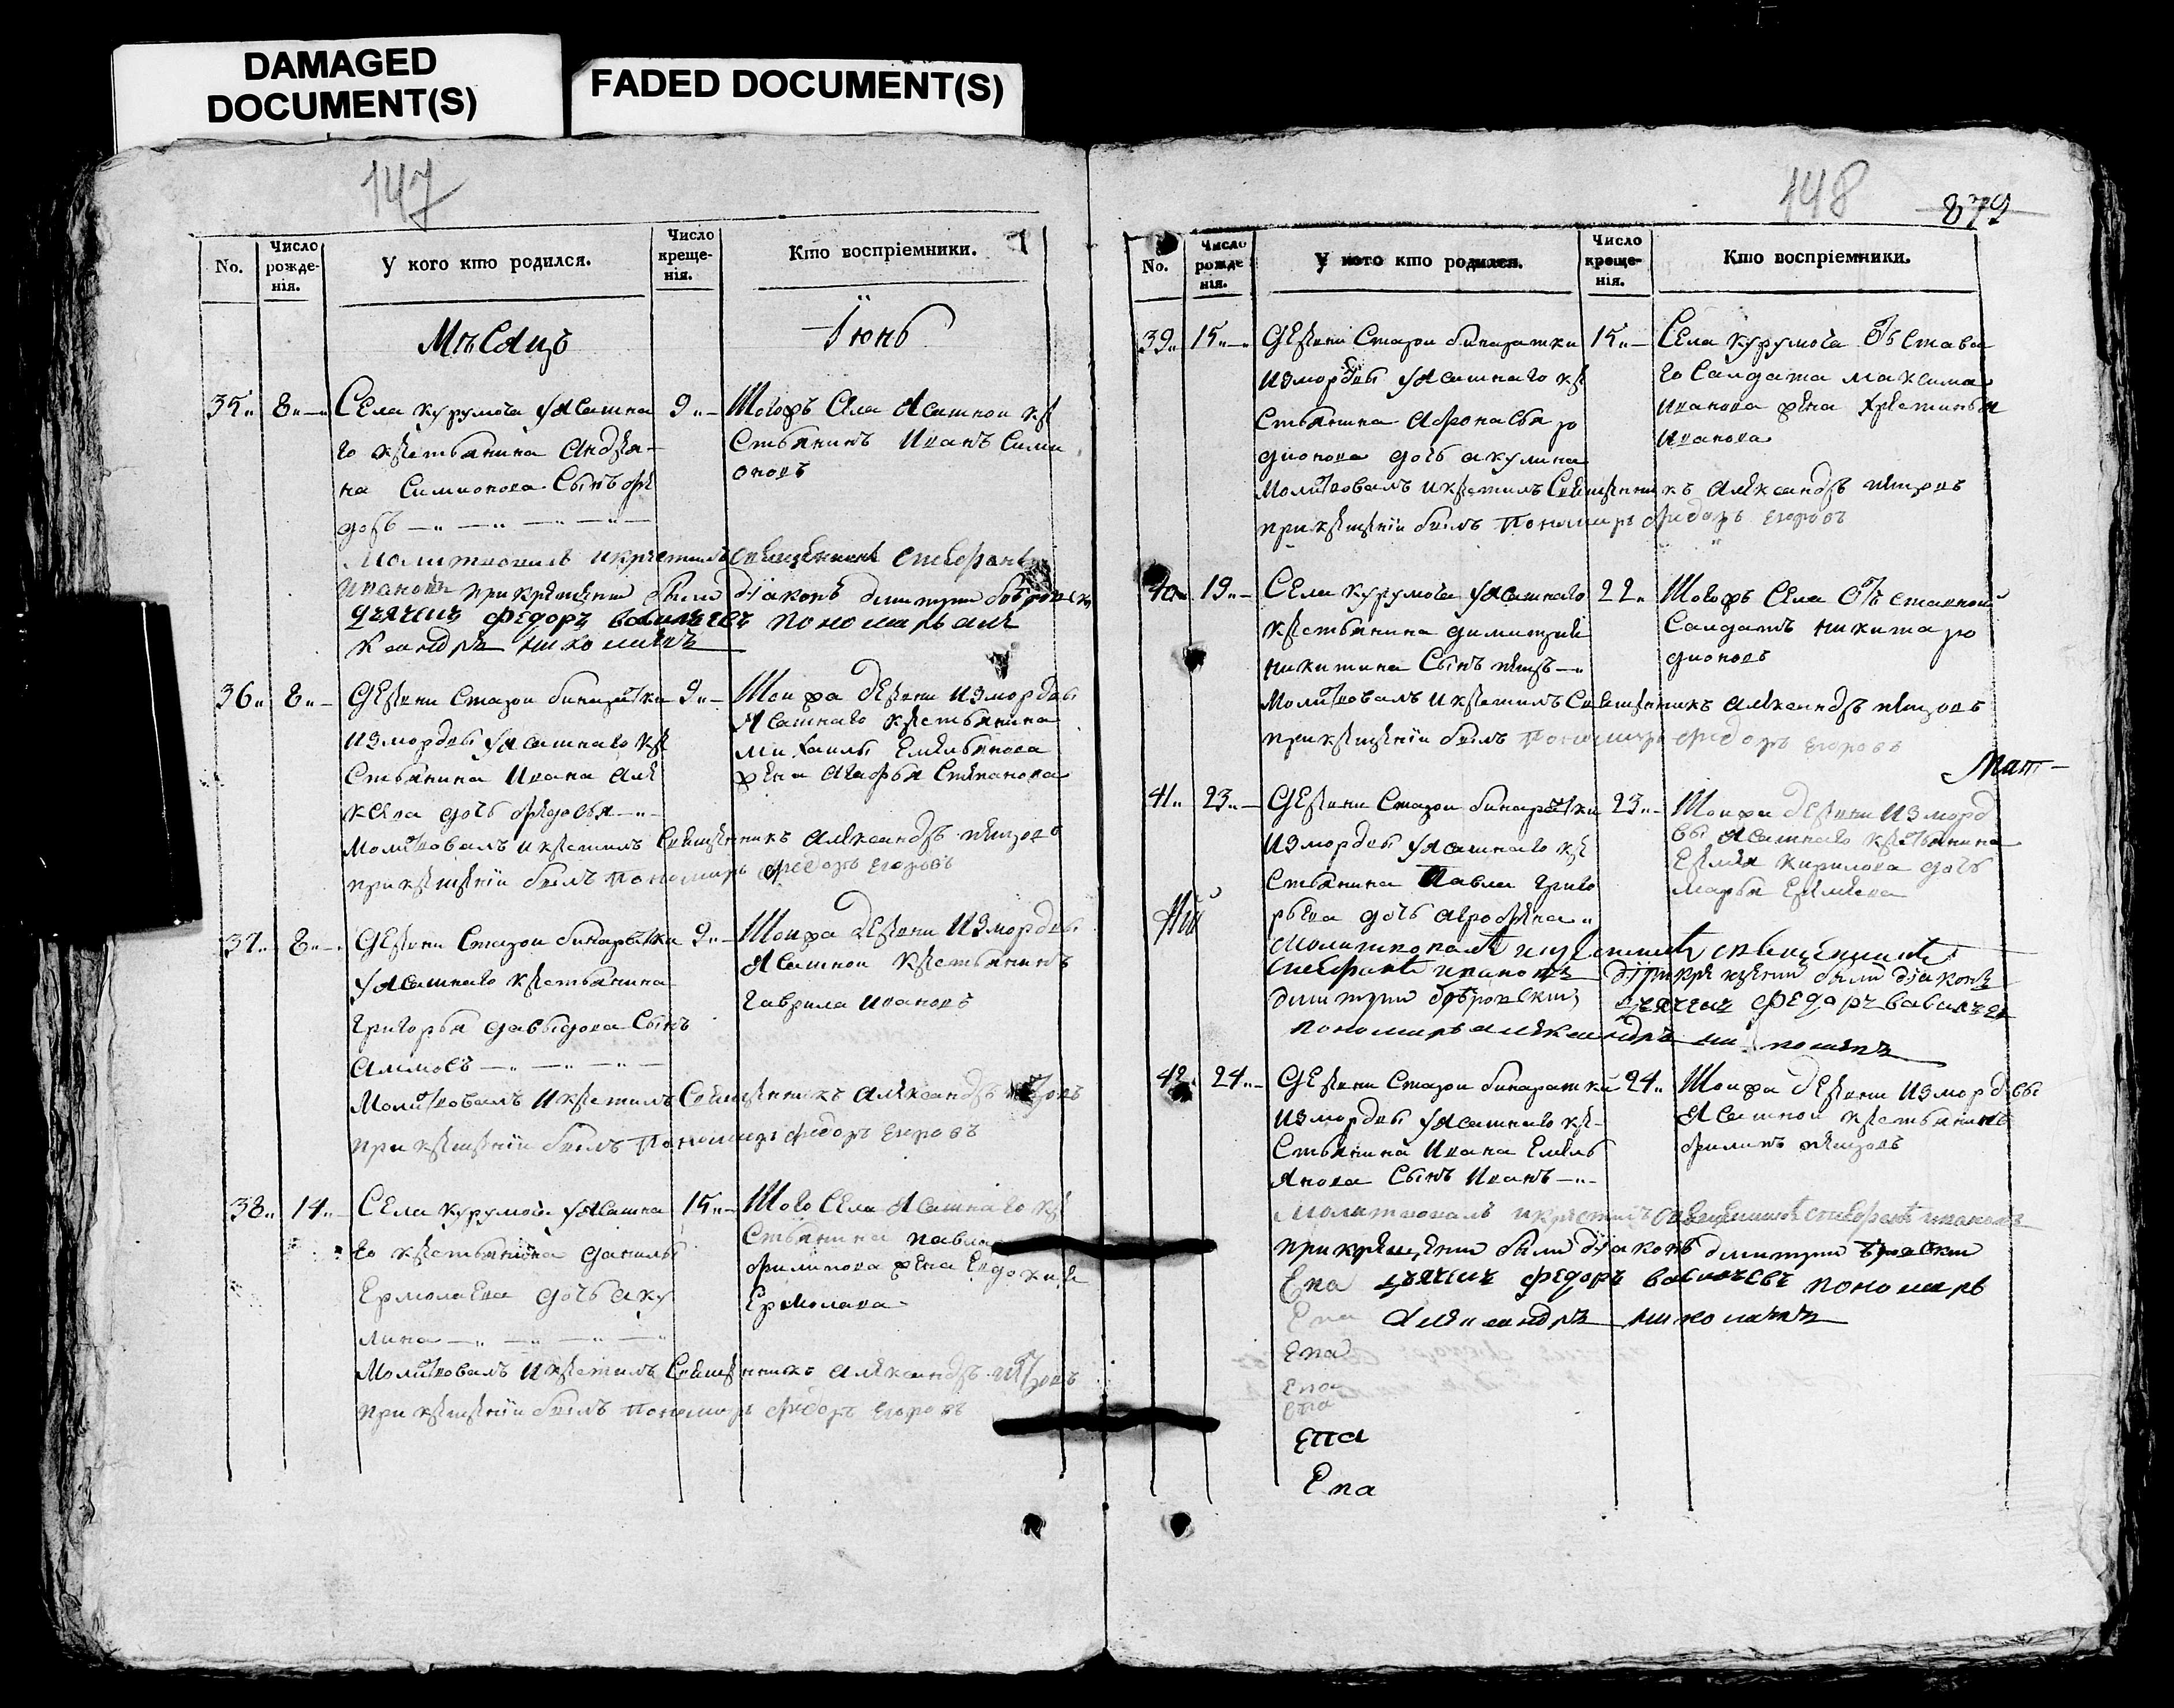 DAMAGED
DOCUMENT(S)
FADED DOCUMENT(S)
147
No.
Число рожденія.
У кого кто родился.
Число крещенія.
Кто воспріемники.
Мѣсяцъ
Іюнь
35 8 Села курумоча уясашна 9
го крестьянина Андрея
на Симионова Сынъ фе
доръ
Тогожъ Села Ясашной кре
стьянинъ Иванъ Сими
оновъ
Молитвовалъ и крестилъ священникъ Стефанъ
Ивановъ при крещении были діаконъ димитрий
дьячекъ федоръ васильевъ пономарь але
ксандръ николаевъ
36 8 Деревни Старой бинаратки 9
измордвы уясашнаго кре
стьянина Ивана Але
ксева дочь федосья
Тоиже деревни измордвы
Ясашнаго крестьянина
Михаилы Емельянова
жена Агафья Степанова
Молитвовалъ и крестилъ Священникъ Александръ петровъ
при крещеніи былъ пономарь федоръ егоровъ
37 8 Деревни Старой бинаратки 9
уясашнаго крестьянина
Григорья давыдова Сынъ
Аммосъ
Тоиже деревни измордвы
Ясашной крестьянинъ
Гаврила Ивановъ
Молитвовалъ и крестилъ Священникъ Александръ петровъ
при крещеніи былъ пономарь федоръ егоровъ
38 14 Села курумоча уясашна 15
го крестьянина данилы
Ермолаева дочь аку
лина
Того Села Ясашнаго кре
стьянина павла
филипова жена Евдокия
Ермолаева
Молитвовалъ и крестилъ Священникъ Александръ петровъ
при крещеніи былъ пономарь федоръ егоровъ
148
879
No.
Число рожденія.
У кого кто родился.
Число крещенія.
Кто воспріемники.
39 15 Деревни Старой бинаратки 15
измордвы уясашнаго кре
стьянина Афонасья ро
дионова дочь акулина
Села курумоча отстава
го Салдата максима
Иванова жена
Иванова
Молитвовалъ и крестилъ Священникъ Александръ петровъ
при крещеніи былъ пономарь федоръ егоровъ
40 19 Села курумоча уясашнаго 22
крестьянина димитрия
никитина Сынъ петръ
Тогожъ Села отставной
Салдатъ никита ро
дионовъ
Молитвовалъ и крестилъ Священникъ Александръ петровъ
при крещеніи былъ пономарь федоръ егоровъ
41 23 Деревни Старой бинаратки 23
измордвы уясашнаго кре
стьянина Павла григо
рьева дочь агрофена
Тоиже деревни изморд
вы Ясашнаго крестьянина
Еремея кирилова дочь
марья Еремеева
Молитвовалъ и крестилъ священникъ
Стефанъ Ивановъ при крещении были діаконъ
димитрий дьячекъ федоръ васильевъ
пономарь александръ николаевъ
42 24 Деревни Старой бинаратки 24
измордвы уясашнаго кре
стьянина Ивана Емель
янова Сынъ Иванъ
Тоиже деревни измордвы
Ясашной крестьянинъ
филипъ петровъ
Молитвовалъ и крестилъ священникъ Стефанъ Ивановъ
при крещении были діаконъ димитрий
Епа дьячекъ федоръ васильевъ пономарь
Епа александръ николаевъ
Епа
Епа
Епа
Епа
Епа